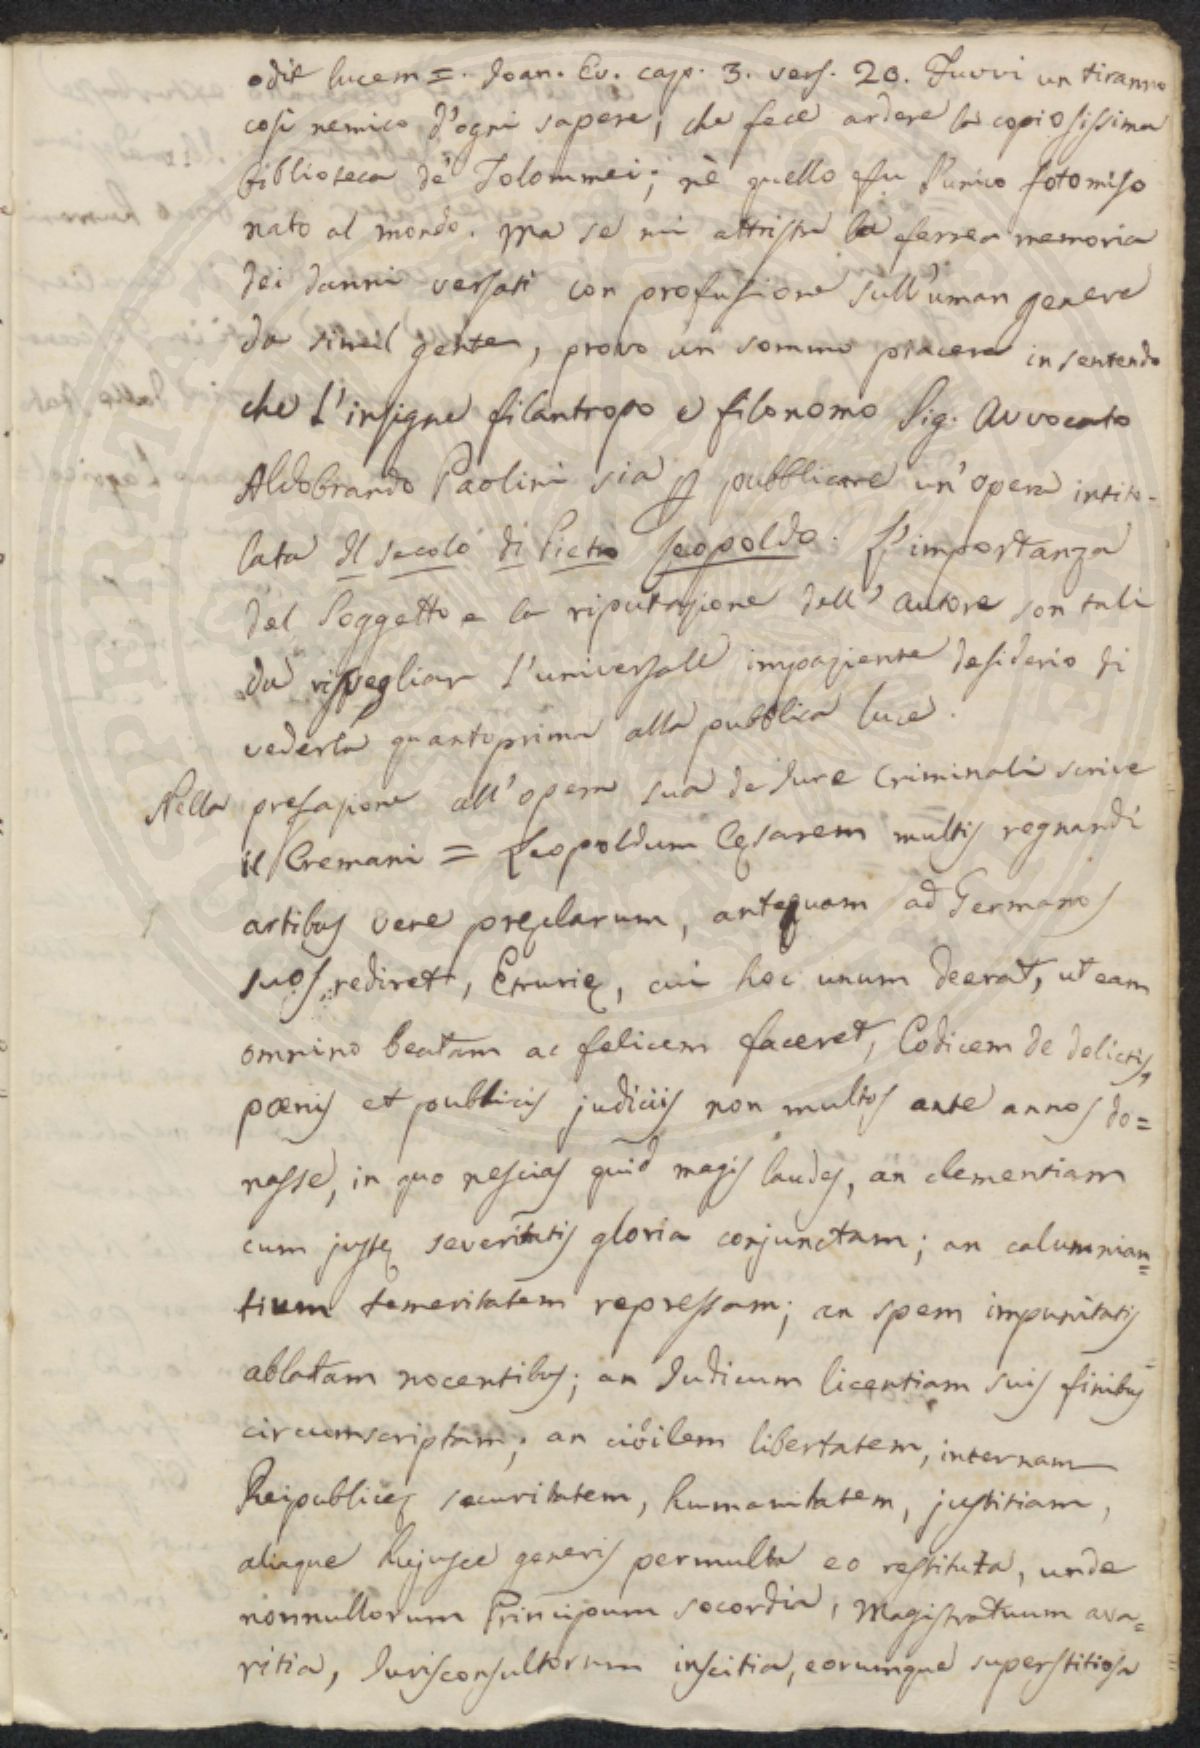 odit lucem =. Joan. Ev. cap. 3. vers. 20. Fuvvi un tiranno
così nemico d'ogni sapere, che fece ardere la copiosissima
biblioteca de' Tolommei; nè quello fu l'unico fotomiso
nato al mondo. Ma se mi attrista la ferrea memoria
dei danni versati con profusione sull'uman genere
da simil gente, provo un sommo piacere in sentendo
che l'insigne filantropo e filonomo Sig. Avvocato
Aldobrando Paolini sia p pubblicare un'opera intito-
lata Il secolo di Pietro Leopoldo. L'importanza
del Soggetto e la riputazione dell'autore son tali
da risvegliar l'universale impaziente desiderio di
vederla quantoprima alla pubblica luce.
Nella prefazione all'opera sua de Jure Criminali scrive
il Cremani = Leopoldum Cęsarem multis regnandi
artibus vere pręclarum, antequam ad Germanos
suos rediret, Etrurię, cui hoc unum deerat, ut eam
omnino beatam ac felicem faceret, Codicem de delictis,
pœnis et publicis judiciis non multos ante annos do=
nasse, in quo nescias quid magis laudes, an clementiam
cum justę severitatis gloria conjunctam; an calumnian=
tium temeritatem repressam; an spem impunitatis
ablatam nocentibus; an Judicum licentiam suis finibus
circumscriptam; an civilem libertatem, internam
Reipublicę securitatem, humanitatem, justitiam,
aliaque hujusce generis permulta eo restituta, unde
nonnullorum Principum socordia, Magistratuum ava=
ritia, Jurisconsultorum inscitia, eorumque superstitiosa